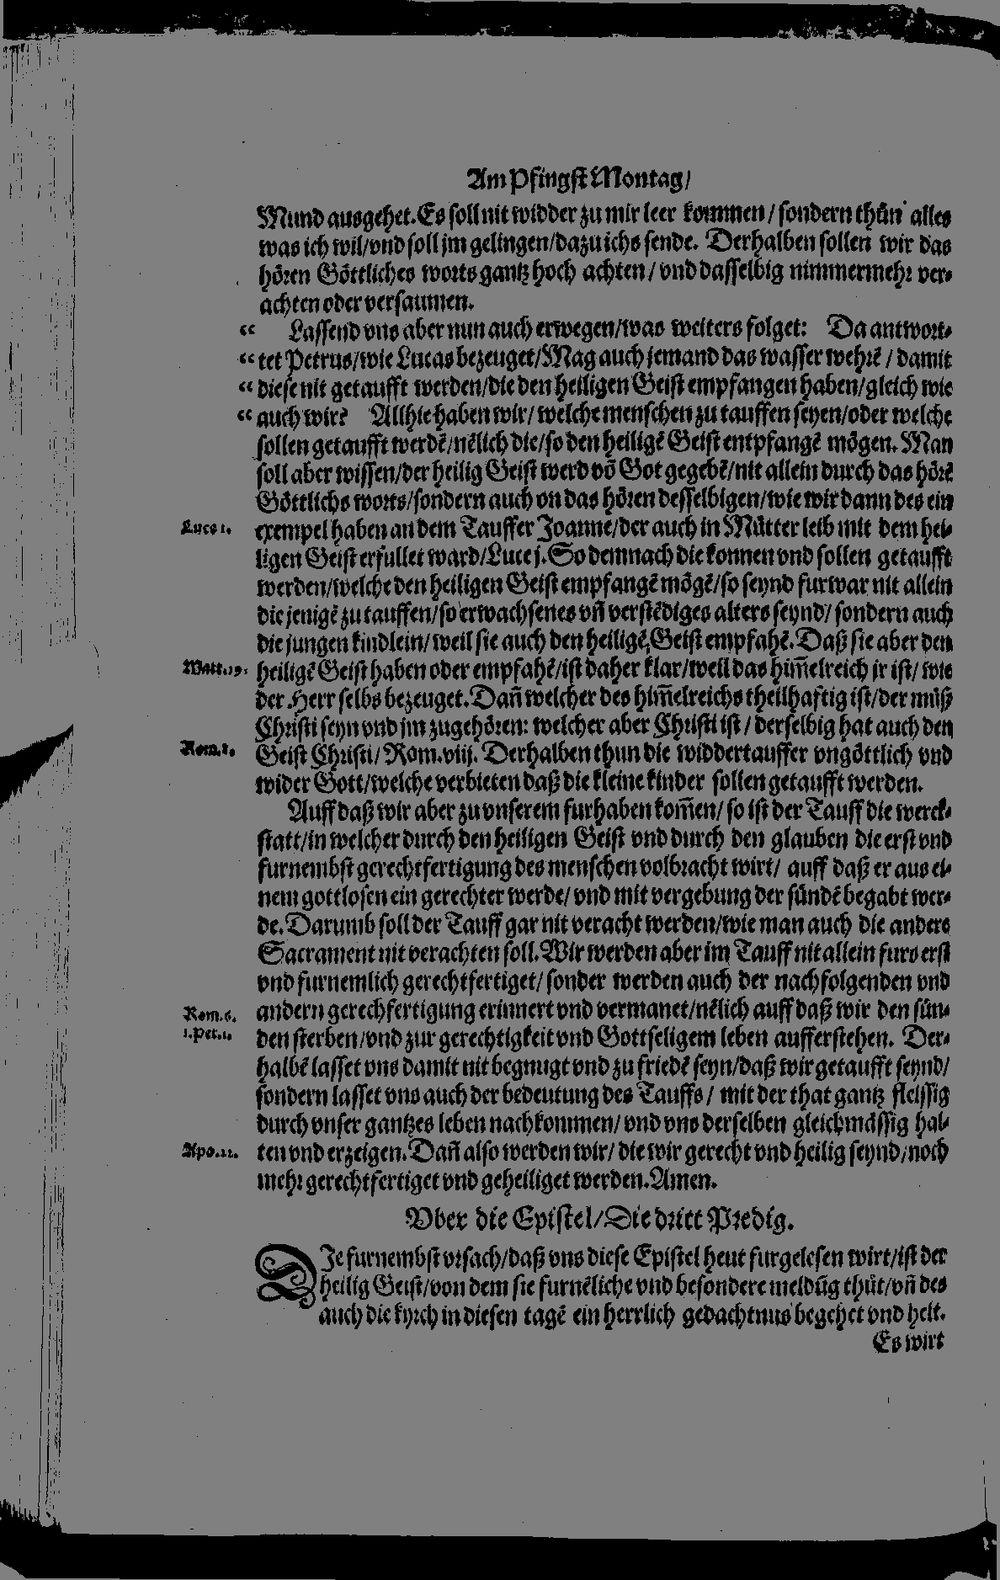 Am Pfingst Montag/
Mund ausgehet. Es soll nit widder zu mir leer kommen/ sondern thůn alles
was ich wil/vnd soll jm gelingen/dazu ichs sende. Derhalben sollen wir das
hören Göttliches worts gantz hoch achten/ vnd dasselbig nimmermehr ver-
achten oder versaumen.
“ Lassend vns aber nun auch erwegen/was weiters folget: Da antwort-
“ tet Petrus/wie Lucas bezeuget/Mag auch jemand das wasser wehrē/ damit
“ diese nit getaufft werden/die den heiligen Geist empfangen haben/gleich wie
“ auch wir? Allhie haben wir/ welche menschen zu tauffen seyen/oder welche
sollen getaufft werdē/nēlich die/so den heiligē Geist entpfangē mögen. Man
soll aber wissen/der heilig Geist werd vō Got gegebē/nit allein durch das hörē
Göttlichs worts/sondern auch on das hören desselbigen/wie wir dann des ein
Luce 1. exempel haben an dem Tauffer Joanne/der auch in Můtter leib mit dem hei-
ligen Geist erfullet ward/Luce j. So demnach die konnen vnd sollen getaufft
werden/welche den heiligen Geist empfangē mögē/so seynd furwar nit allein
die jenigē zu tauffen/so erwachsenes vñ verstēdiges alters seynd/ sondern auch
die jungen kindlein/ weil sie auch den heiligē Geist empfahē. Daß sie aber den
Matt.19. heiligē Geist haben oder empfahē/ist daher klar/weil das him̄elreich jr ist/ wie
der Herr selbs bezeuget. Dañ welcher des him̄elreichs theilhafftig ist/der můß
Christi seyn vnd jm zugehören: welcher aber Christi ist/ derselbig hat auch den
Rom.8. Geist Christi/ Rom.viij. Derhalben thun die widdertauffer vngöttlich vnd
wider Gott/welche verbieten daß die kleine kinder sollen getaufft werden.
Auff daß wir aber zu vnserem furhaben kom̄en/ so ist der Tauff die werck-
statt/in welcher durch den heiligen Geist vnd durch den glauben die erst vnd
furnembst gerechtfertigung des menschen volbracht wirt/ auff daß er aus ei-
nem gottlosen ein gerechter werde/ vnd mit vergebung der sündē begabt wer-
de. Darumb soll der Tauff gar nit veracht werden/wie man auch die andere
Sacrament nit verachten soll. Wir werden aber im Tauff nit allein furs erst
vnd furnemlich gerechtfertiget/ sonder werden auch der nachfolgenden vnd
Rom.6. andern gerechfertigung erinnert vnd vermanet/nēlich auff daß wir den sün-
1.Pet.1. den sterben/vnd zur gerechtigkeit vnd Gottseligem leben aufferstehen. Der-
halbē lasset vns damit nit begnugt vnd zu friedē seyn/daß wir getaufft seynd/
sondern lasset vns auch der bedeutung des Tauffs/ mit der that gantz fleissig
durch vnser gantzes leben nachkommen/ vnd vns derselben gleichmässig hal-
Apo.22. ten vnd erzeigen. Dañ also werden wir/ die wir gerecht vnd heilig seynd/noch
mehr gerechtfertiget vnd geheiliget werden. Amen.
Vber die Epistel/Die dritt Predig.
DJe furnembst vrsach/daß vns diese Epistel heut furgelesen wirt/ist der
heilig Geist/von dem sie furnēliche vnd besondere meldūg thůt/vñ des
auch die kyrch in diesen tagē ein herrlich gedachtnus begehet vnd helt.
Es wirt